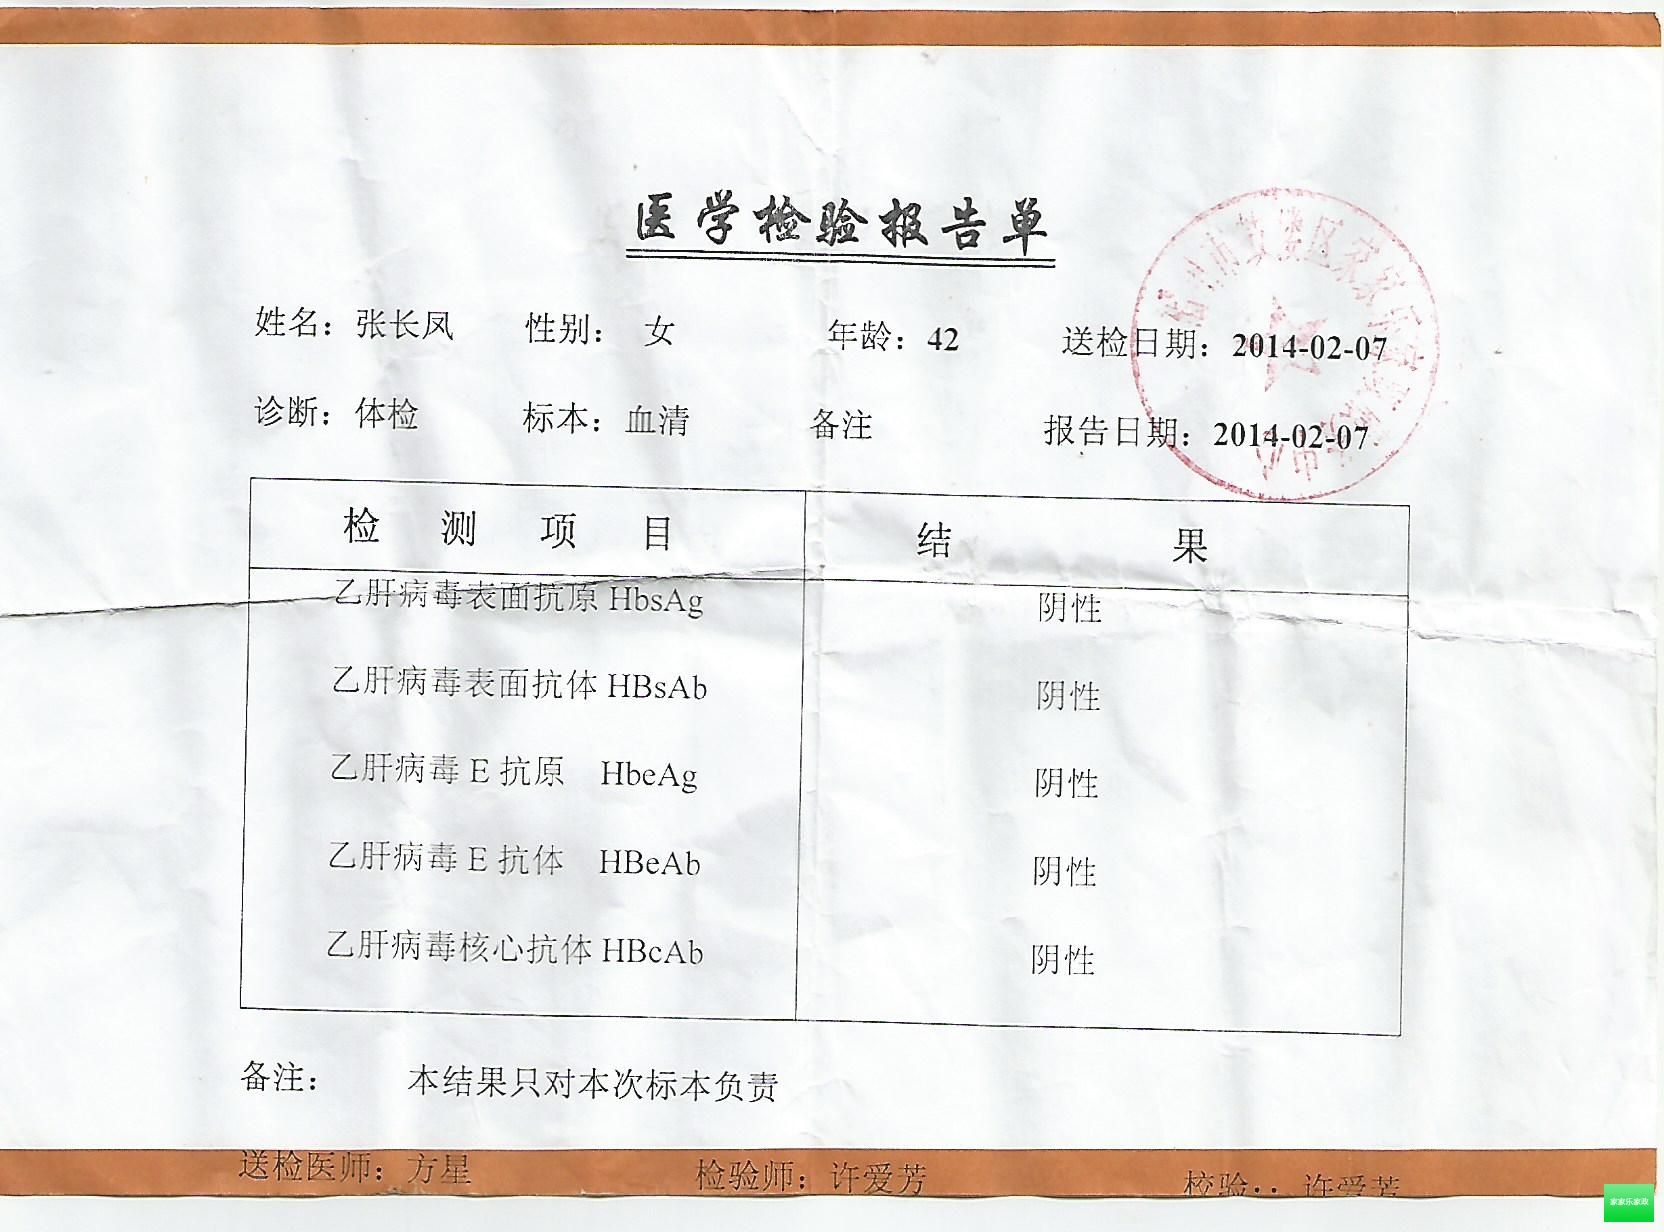 医学检验报告单
姓名：张长凤 性别： 女 年龄：42 送检日期：2014-02-07
诊断：体检 标本：血清 备注 报告日期：2014-02-07
检 测 项 目 结 果
乙肝病毒表面抗原 HbsAg 阴性
乙肝病毒表面抗体 HBsAb 阴性
乙肝病毒 E 抗原 HbeAg 阴性
乙肝病毒 E 抗体 HBeAb 阴性
乙肝病毒核心抗体 HBcAb 阴性
备注： 本结果只对本次标本负责
送检医师：方星 检验师：许爱芳 校验：：许爱芳
家家乐家政